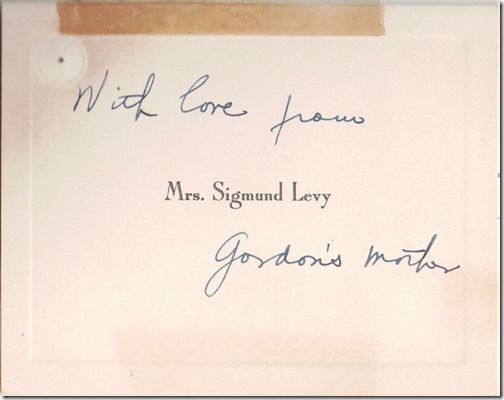 With love from
Mrs. Sigmund Levy
Gordon's mother